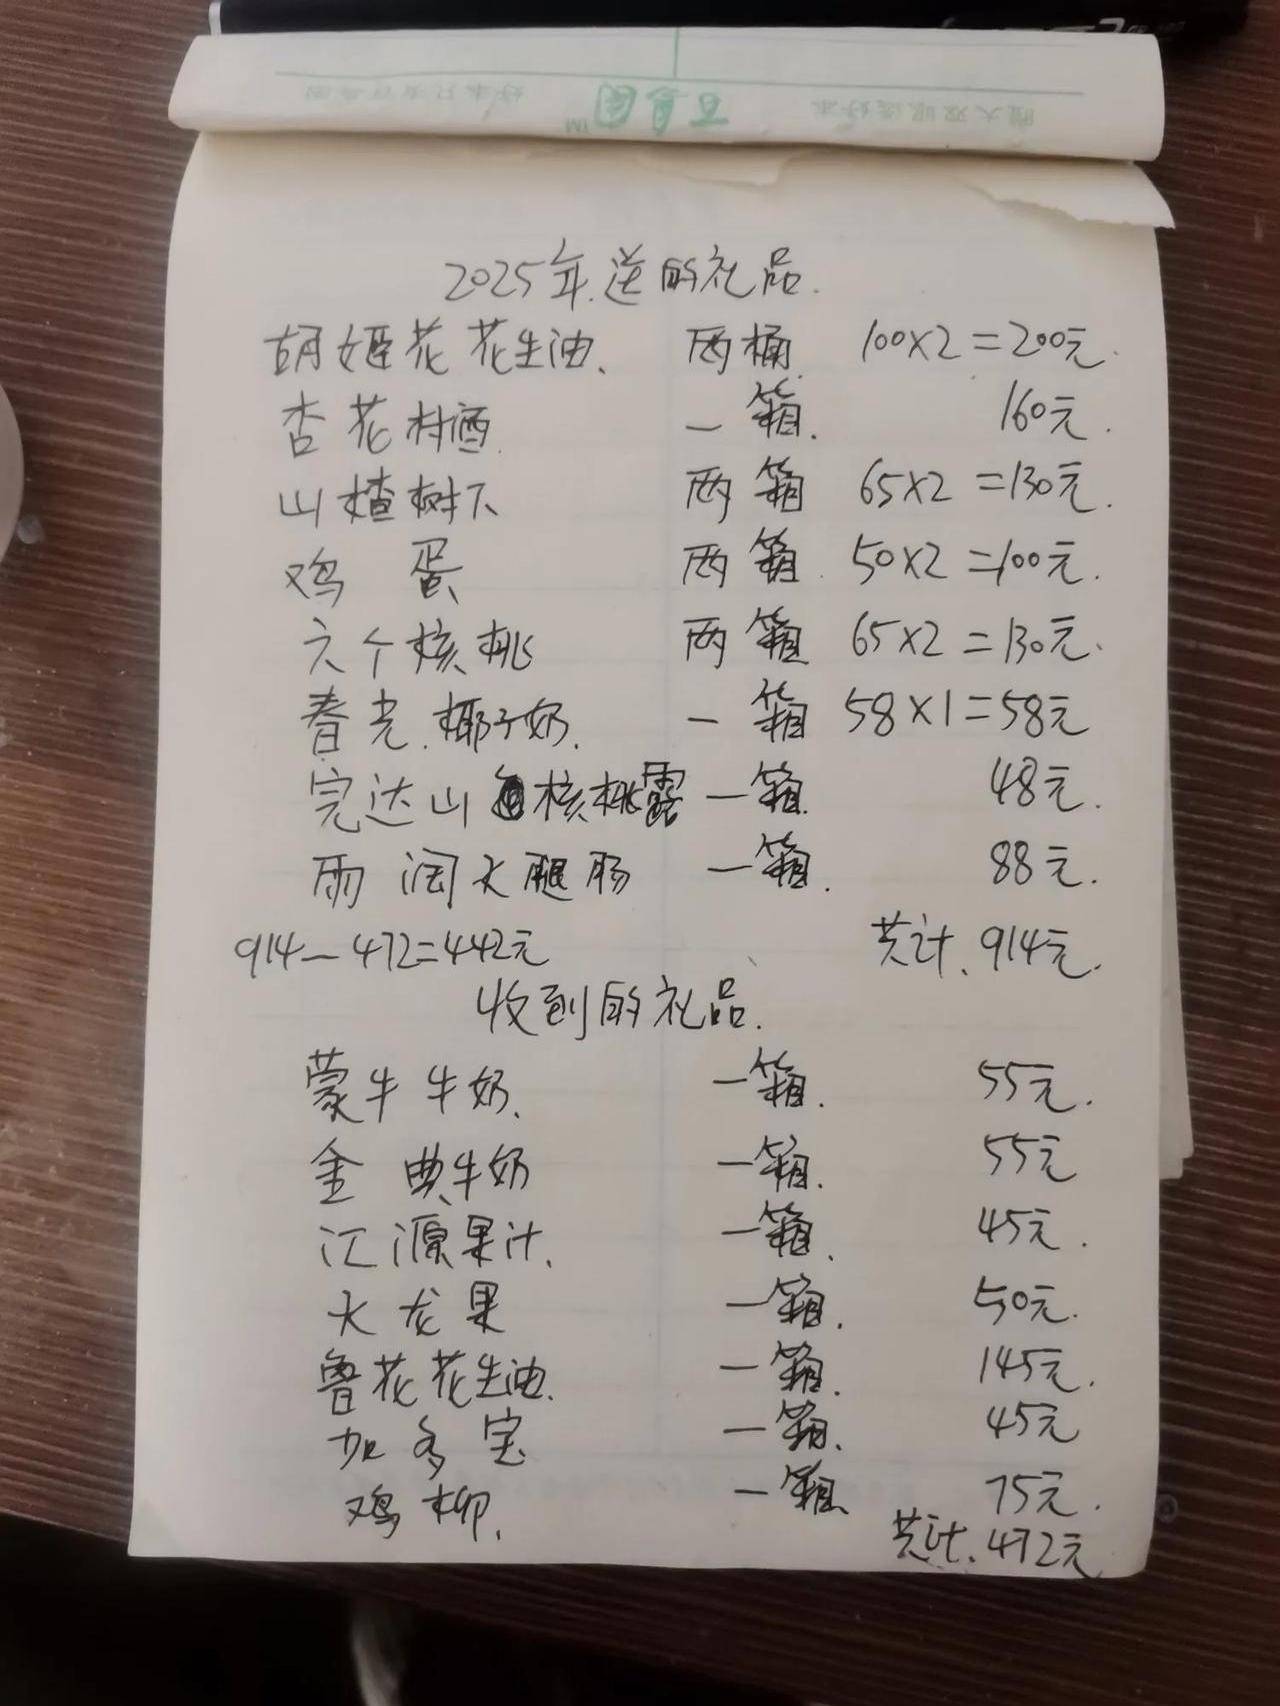 百惠园TM
2025年送的礼品.
胡姬花花生油、 两桶 100×2=200元.
杏花村酒 一箱. 160元.
山楂树下 两箱 65×2=130元.
鸡蛋 两箱 50×2=100元.
六个核桃 两箱 65×2=130元.
春光.椰子奶. 一箱 58×1=58元
完达山核桃露 一箱 48元.
雨润火腿肠 一箱. 88元.
914-472=442元 共计、914元.
收到的礼品.
蒙牛牛奶、 一箱. 55元.
金典牛奶 一箱. 55元
汇源果汁、 一箱、 45元.
火龙果 一箱. 50元.
鲁花花生油. 一箱. 145元.
加多宝 一箱、 45元
鸡柳、 一箱 75元.
共计、472元